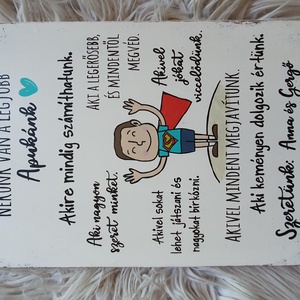 NEKÜNK VAN A LEGJOBB
Apukánk
Akire mindig számíthatunk.
AKI A LEGERŐSEBB,
ÉS MINDENTŐL
MEGVÉD.
Aki nagyon
szeret minket.
Akivel
jókat
viccelődünk.
Akivel sokat
lehet játszani és
nagyokat birkózni.
AKIVEL MINDENT MEGJAVÍTUNK.
Aki keményen dolgozik ér tünk.
Szeretünk: Anna és Gergő